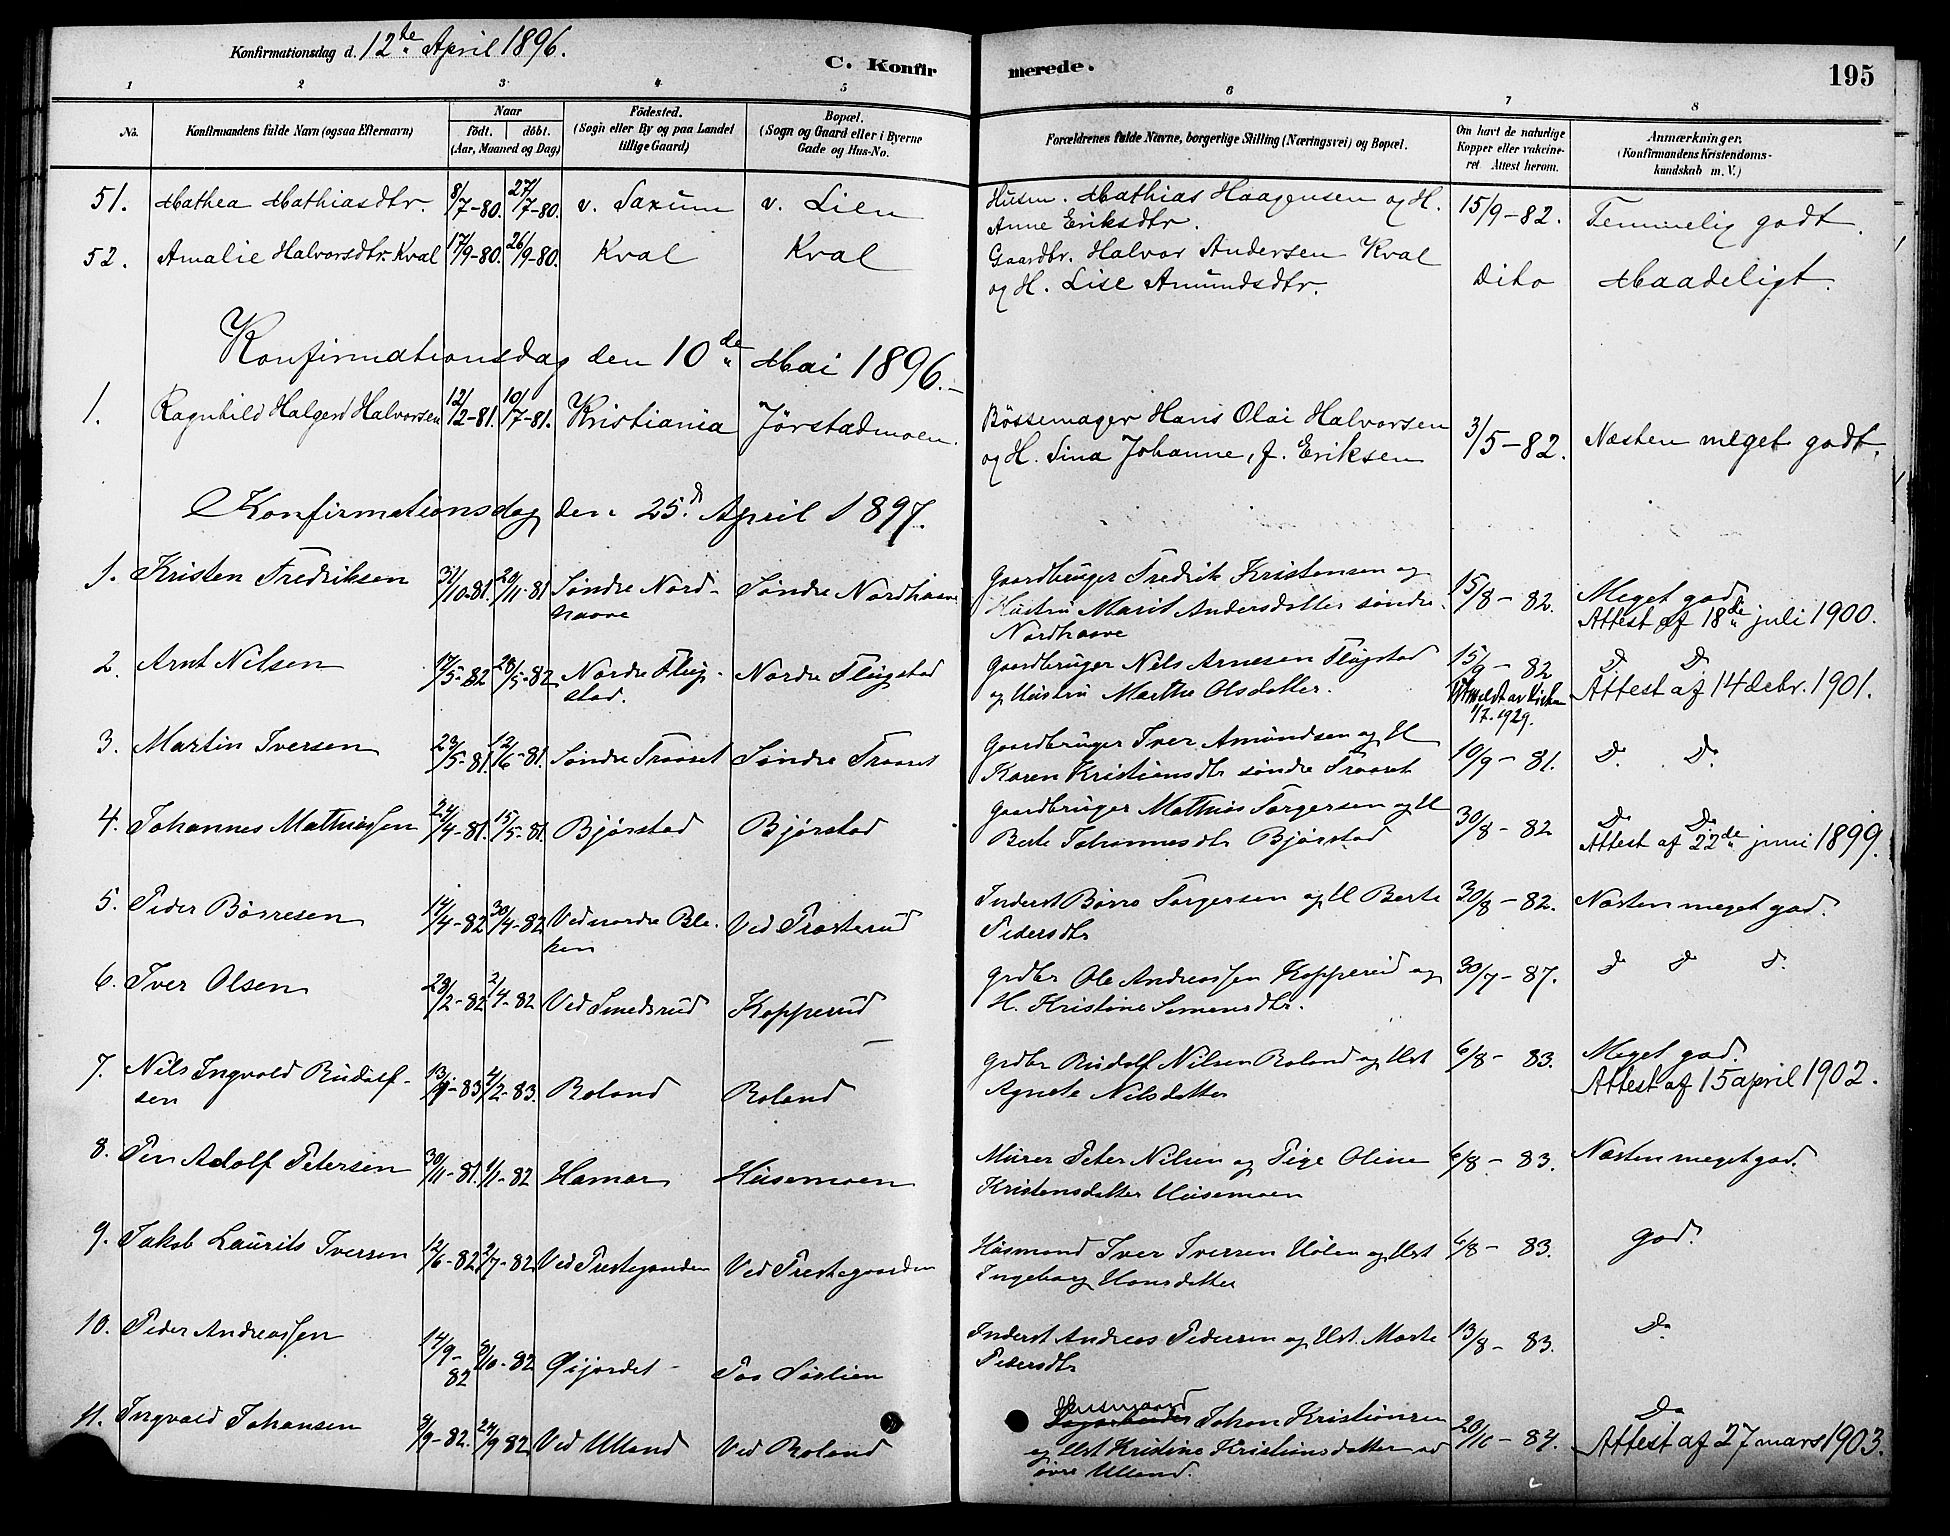 Konfirmationsdag d. 12te April 1896.
C. Konfirmerede.
195
1 2 3 4 5 6 7 8
No. Konfirmandens fulde Navn (ogsaa Efternavn) Naar født. døbt. (Aar, Maaned og Dag) Födested. (Sogn eller By og paa Landet tillige Gaard) Bopæl. (Sogn og Gaard eller i Byerne Gade og Hus-No. Forældrenes fulde Navne, borgerlige Stilling (Næringsvei) og Bopæl. Om havt de naturlige Kopper eller vakcineret. Attest herom. Anmærkninger. (Konfirmandens Kristendomskundskab m. V.)
51. Mathea Mathiasdtr. 8/7-80. 27/7-80. v. Saxum v. Lien Husm. Mathias Haagensen og H. 15/9-82. Temmelig godt.
Anne Eriksdtr.
52. Amalie Halvorsdtr. Kval 17/9-80. 26/9-80. Kval Kval Gaardbr. Halvor Andersen Kval
og H. Lise Amundsdtr. Dito Maadeligt.
Konfirmationsdag den 10de Mai 1896.
1. Ragnhild Halgerd Halvorsen 12/2-81. 10/7-81. Kristiania Jørstadmoen. Bössemager Hans Olai Halvorsen
og H. Sina Johanne, f. Eriksen 3/5-82. Næsten meget godt.
Konfirmationsdag den 25d April 1897.
1. Kristen Fredriksen 31/10-81. 20/11-81 Søndre Nord- Søndre Nordhaave Gaardbruger Fredrik Kristensen og
haave Hustru Marit Andersdatter søndre 15/8-82. Meget god
Nordhaave Attest af 18de juli 1900.
2. Arnt Nilsen 17/5-82 28/5-82 Nordre Flug- Nordre Flugstad Gaardbruger Nils Arnesen Flugstad 15/9-82 Do Do
stad. og Hustru Marthe Olsdatter. Utmeldt av kirken 1/7.1929. Attest af 14 debr. 1901.
3. Martin Iversen 23/5-81. 12/6-81. Søndre Traaset Søndre Traaset Gaardbruger Iver Amundsen og H
Karen Kristiansdtr søndre Traaset 10/9-81. Do. Do.
4. Johannes Mathiassen 24/4-81. 15/5-81. Bjørstad Bjørstad Gaardbruger Mathias Torgersen og H
Berte Johannesdtr Bjørstad 30/8-82 Do Do
Attest af 22de juni 1899.
5. Peder Børresen 14/4-82 30/4-82 Ved nordre Ble- Ved Prosterud Inderst Børre Torgersen og H Berte 30/8-82. Næsten meget god.
ken Pedersdtr
6. Iver Olsen 28/2-82 2/4-82 Ved Smedsrud Kopperud Grdbr Ole Andreassen Kopperud og 30/7-87. Do Do Do.
H. Kristine Simensdtr.
7. Nils Ingvald Rudolf- 13/1-83 4/2-83. Roland Roland Grdbr Rudolf Nilsen Roland og Hst 6/8-83. Meget god.
sen Agnete Nilsdatter Attest af 15 april 1902.
8. Per Adolf Petersen 30/11-81. 1/1-82 Hamar Husemoen Murer Peter Nilsen og Pige Oline 6/8-83. Næsten meget god.
Kristensdatter Husemoen
9. Jakob Laurits Iversen 12/6-82 2/7-82 Ved Prestegaarden Ved Prestegaarden Husmand Iver Iversen Hølen og Hst 6/8-83. god.
Ingeborg Hansdatter
10. Peder Andreassen 14/9-82 8/10-82 Øijordet Paa Søslien Inderst Andreas Pedersen og Hst. Marte 13/8-83. Do
Pedersdtr
11. Ingvald Johansen 9/9-82. 24/9 82 Ved Ulland Ved Roland Husmand Johan Kristiansen
og Hst Kristine Kristiansdatter ved 20/10-84. Do
øvre Ulland. Attest af 27 mars 1903.